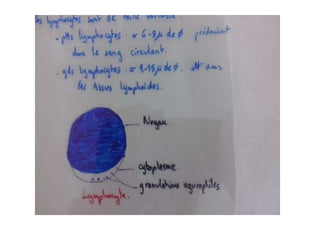 les lymphocytes sont de taille variable :
- ptts lymphocytes : σ 6-9 µ de ø prédominent
dans le sang circulant.
- gds lymphocytes : σ 9-15 µ de ø. dans
les tissus lymphoïdes.
Noyau
cytoplasme.
granulations azurophiles
Lymphocyte.